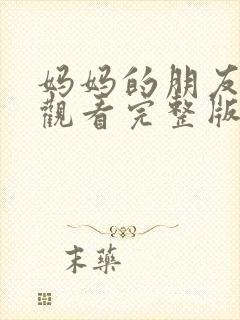 妈妈的朋友
觀看完整版
末藥